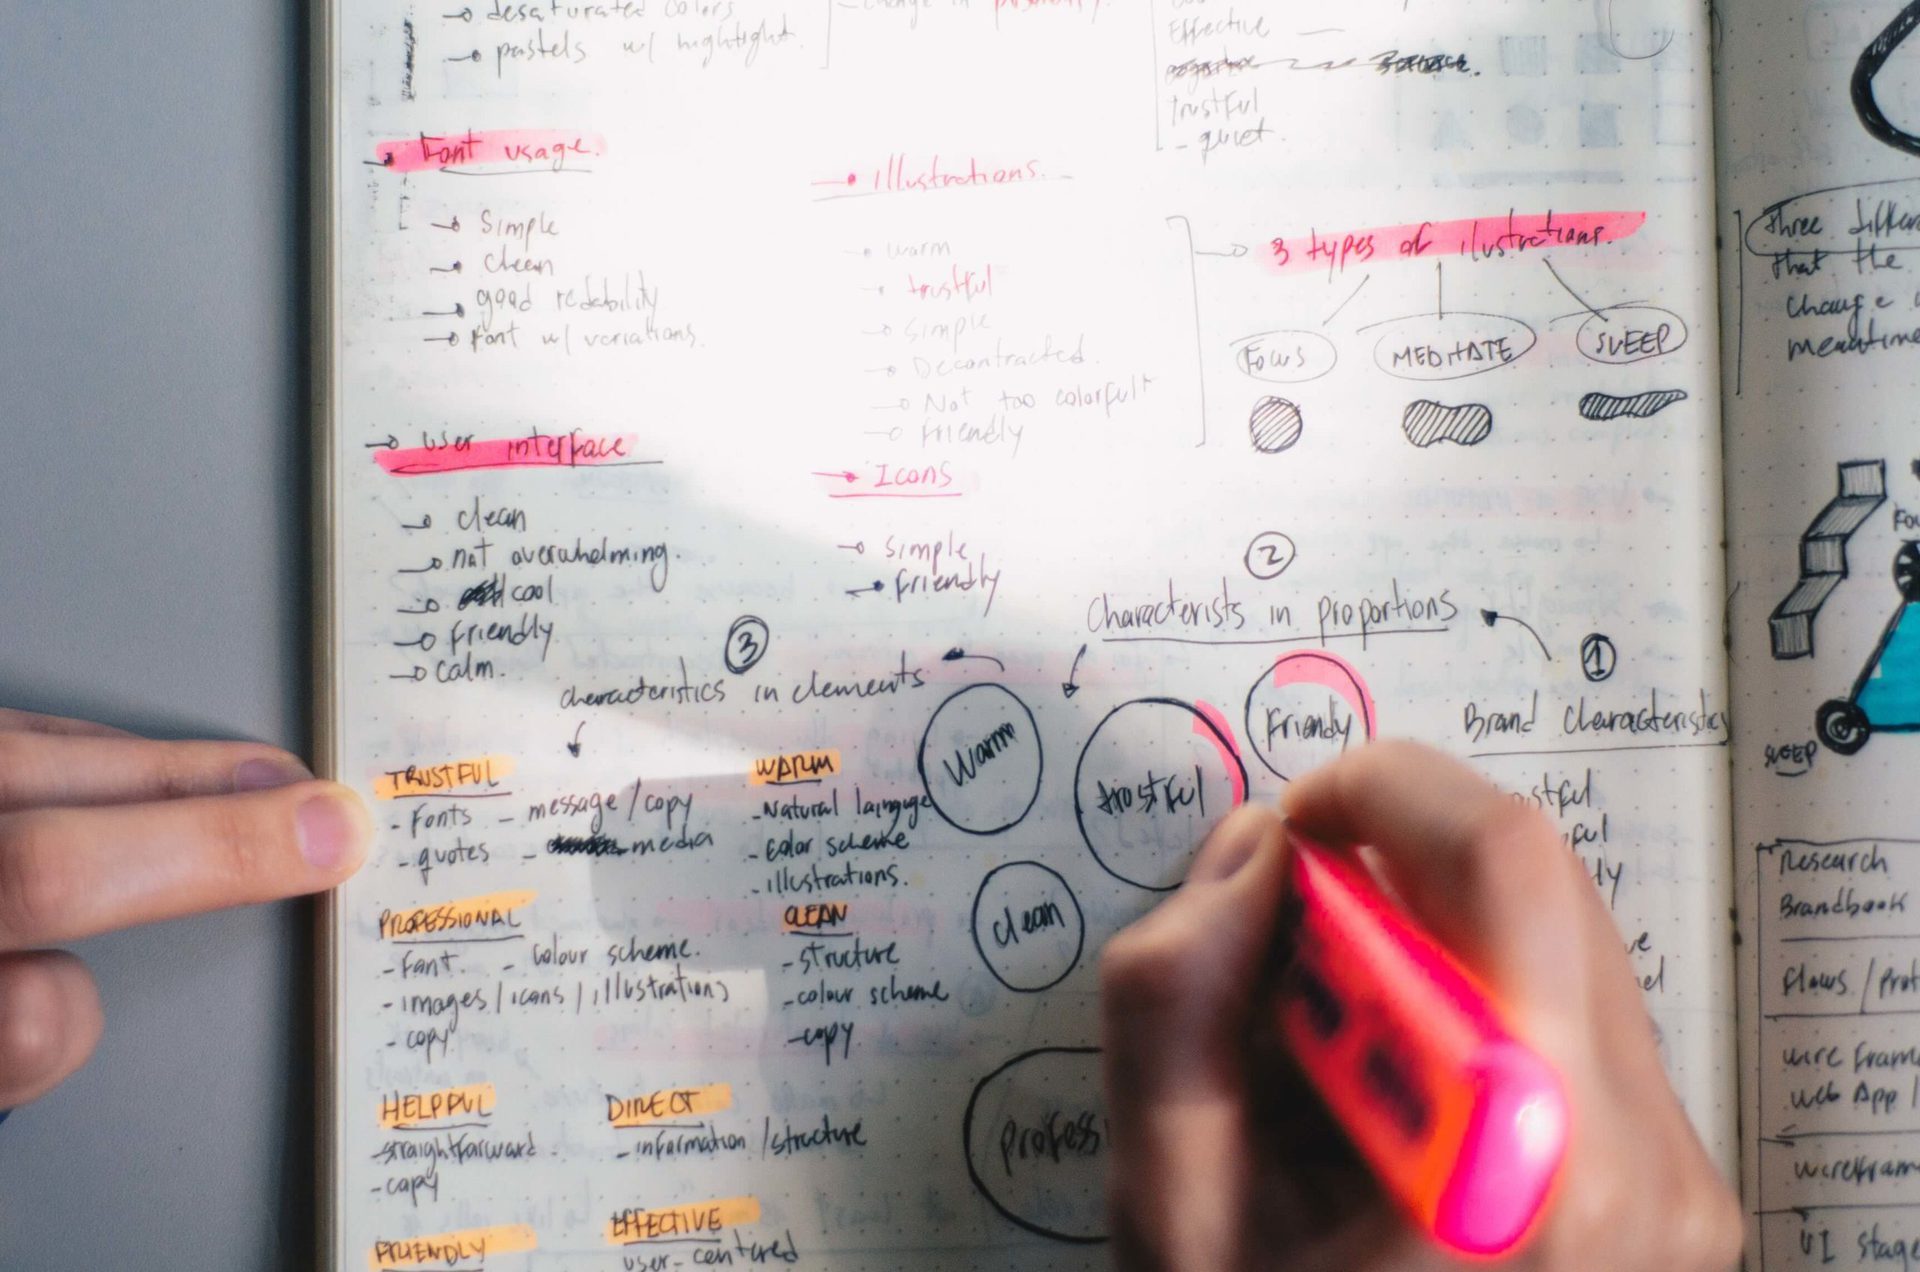 desaturated colors
pastels w/ highlight.
change in
Effective
trustful
- quiet.
Font usage.
Simple
clean
good redability
Font w/ variations.
illustrations.
warm
trustful
simple
Decontracted.
Not too colorful
Friendly
3 types of ilustrations.
Focus
MEDITATE
SLEEP
user interface
clean
not overwhelming.
cool
Friendly
calm.
Icons
simple
Friendly
2
Characterists in proportions
1
Brand Characteristics
3
characteristics in elements
Warm
trustful
Friendly
clean
professi
TRUSTFUL
- Fonts - message / copy
- quotes - media
WARM
- Natural languge
- Color scheme
- illustrations.
PROFESSIONAL
- Font. - colour scheme.
- images / icons / illustrations
- copy
CLEAN
- structure
- colour scheme
- copy
HELPFUL
- straightforward
- copy
DIRECT
- information / structure
FRIENDLY
EFFECTIVE
user-centered
three differ
that the
change
meantime
SLEEP
Research
Brandbook
Flows / Prot
wire fram
web App /
wirefram
UI stage